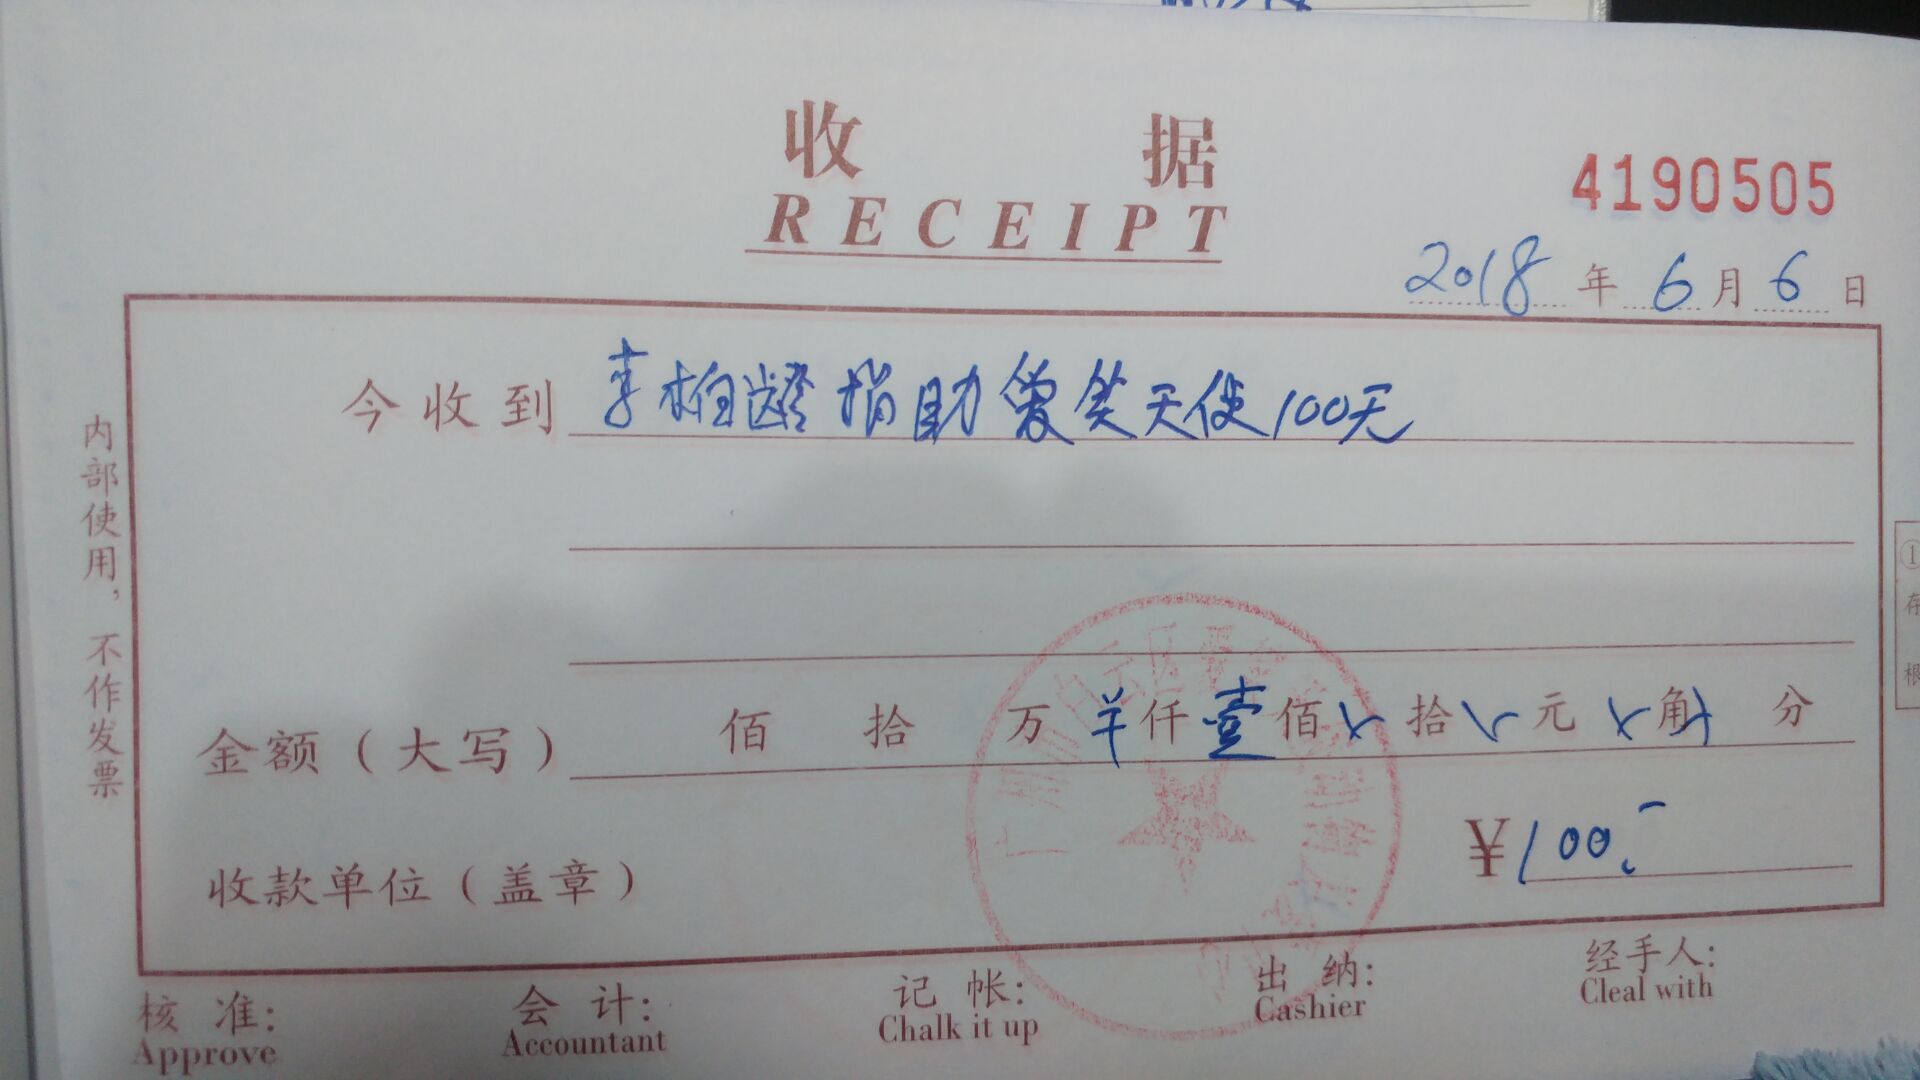 收据
RECEIPT
4190505
2018年6月6日
今收到 李柏龄捐助爱笑天使100元
金额（大写） 佰 拾 万 羊仟壹佰 拾 元 角 分
¥100.-
收款单位（盖章）
核准:
Approve
会计:
Accountant
记帐:
Chalk it up
出纳:
Cashier
经手人:
Cleal with
内部使用，不作发票
①存根
广州市白云区